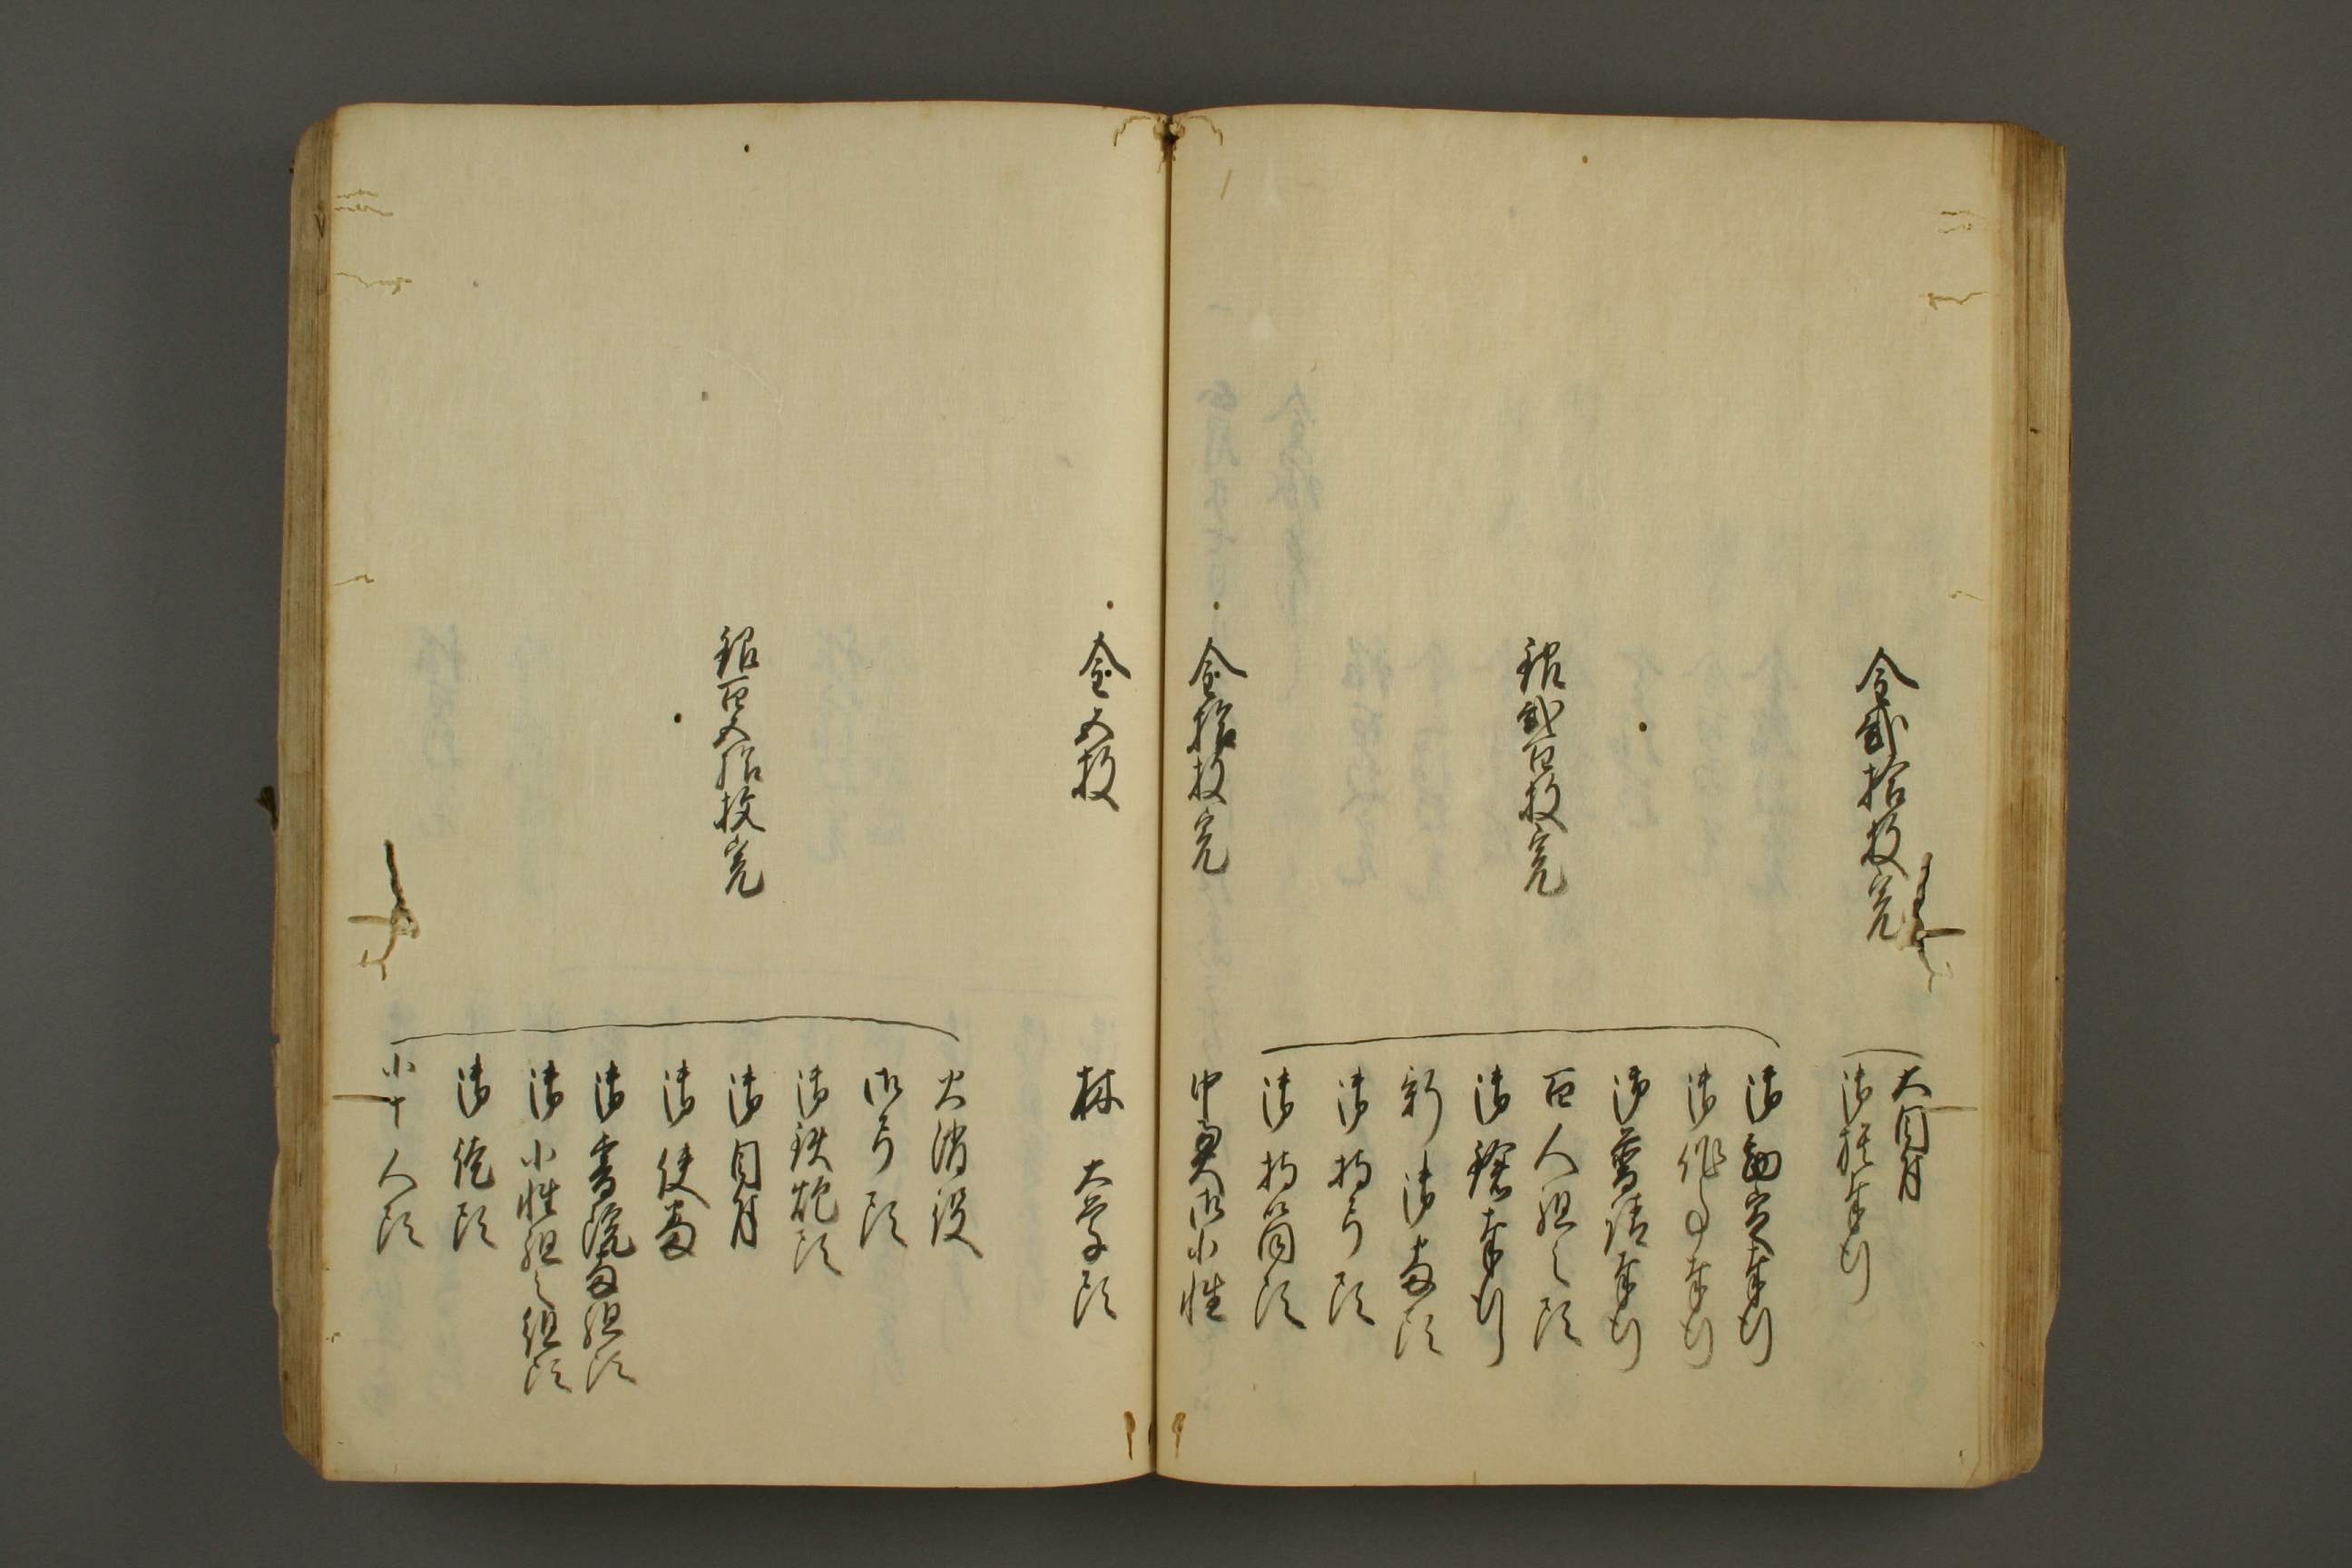 金貳拾枚宛
大目付
御旗奉行
銀貳百枚宛
御勘定奉行
御作事奉行
御普請奉行
百人組之頭
御鑓奉行
新御番頭
御持弓頭
御持筒頭
金拾枚宛
中奥御小性
金五枚
林大学頭
銀百五拾枚宛
火消役
御弓頭
御鉄炮頭
御目付
御使番
御書院番組頭
御小性組之組頭
御徒頭
小十人頭